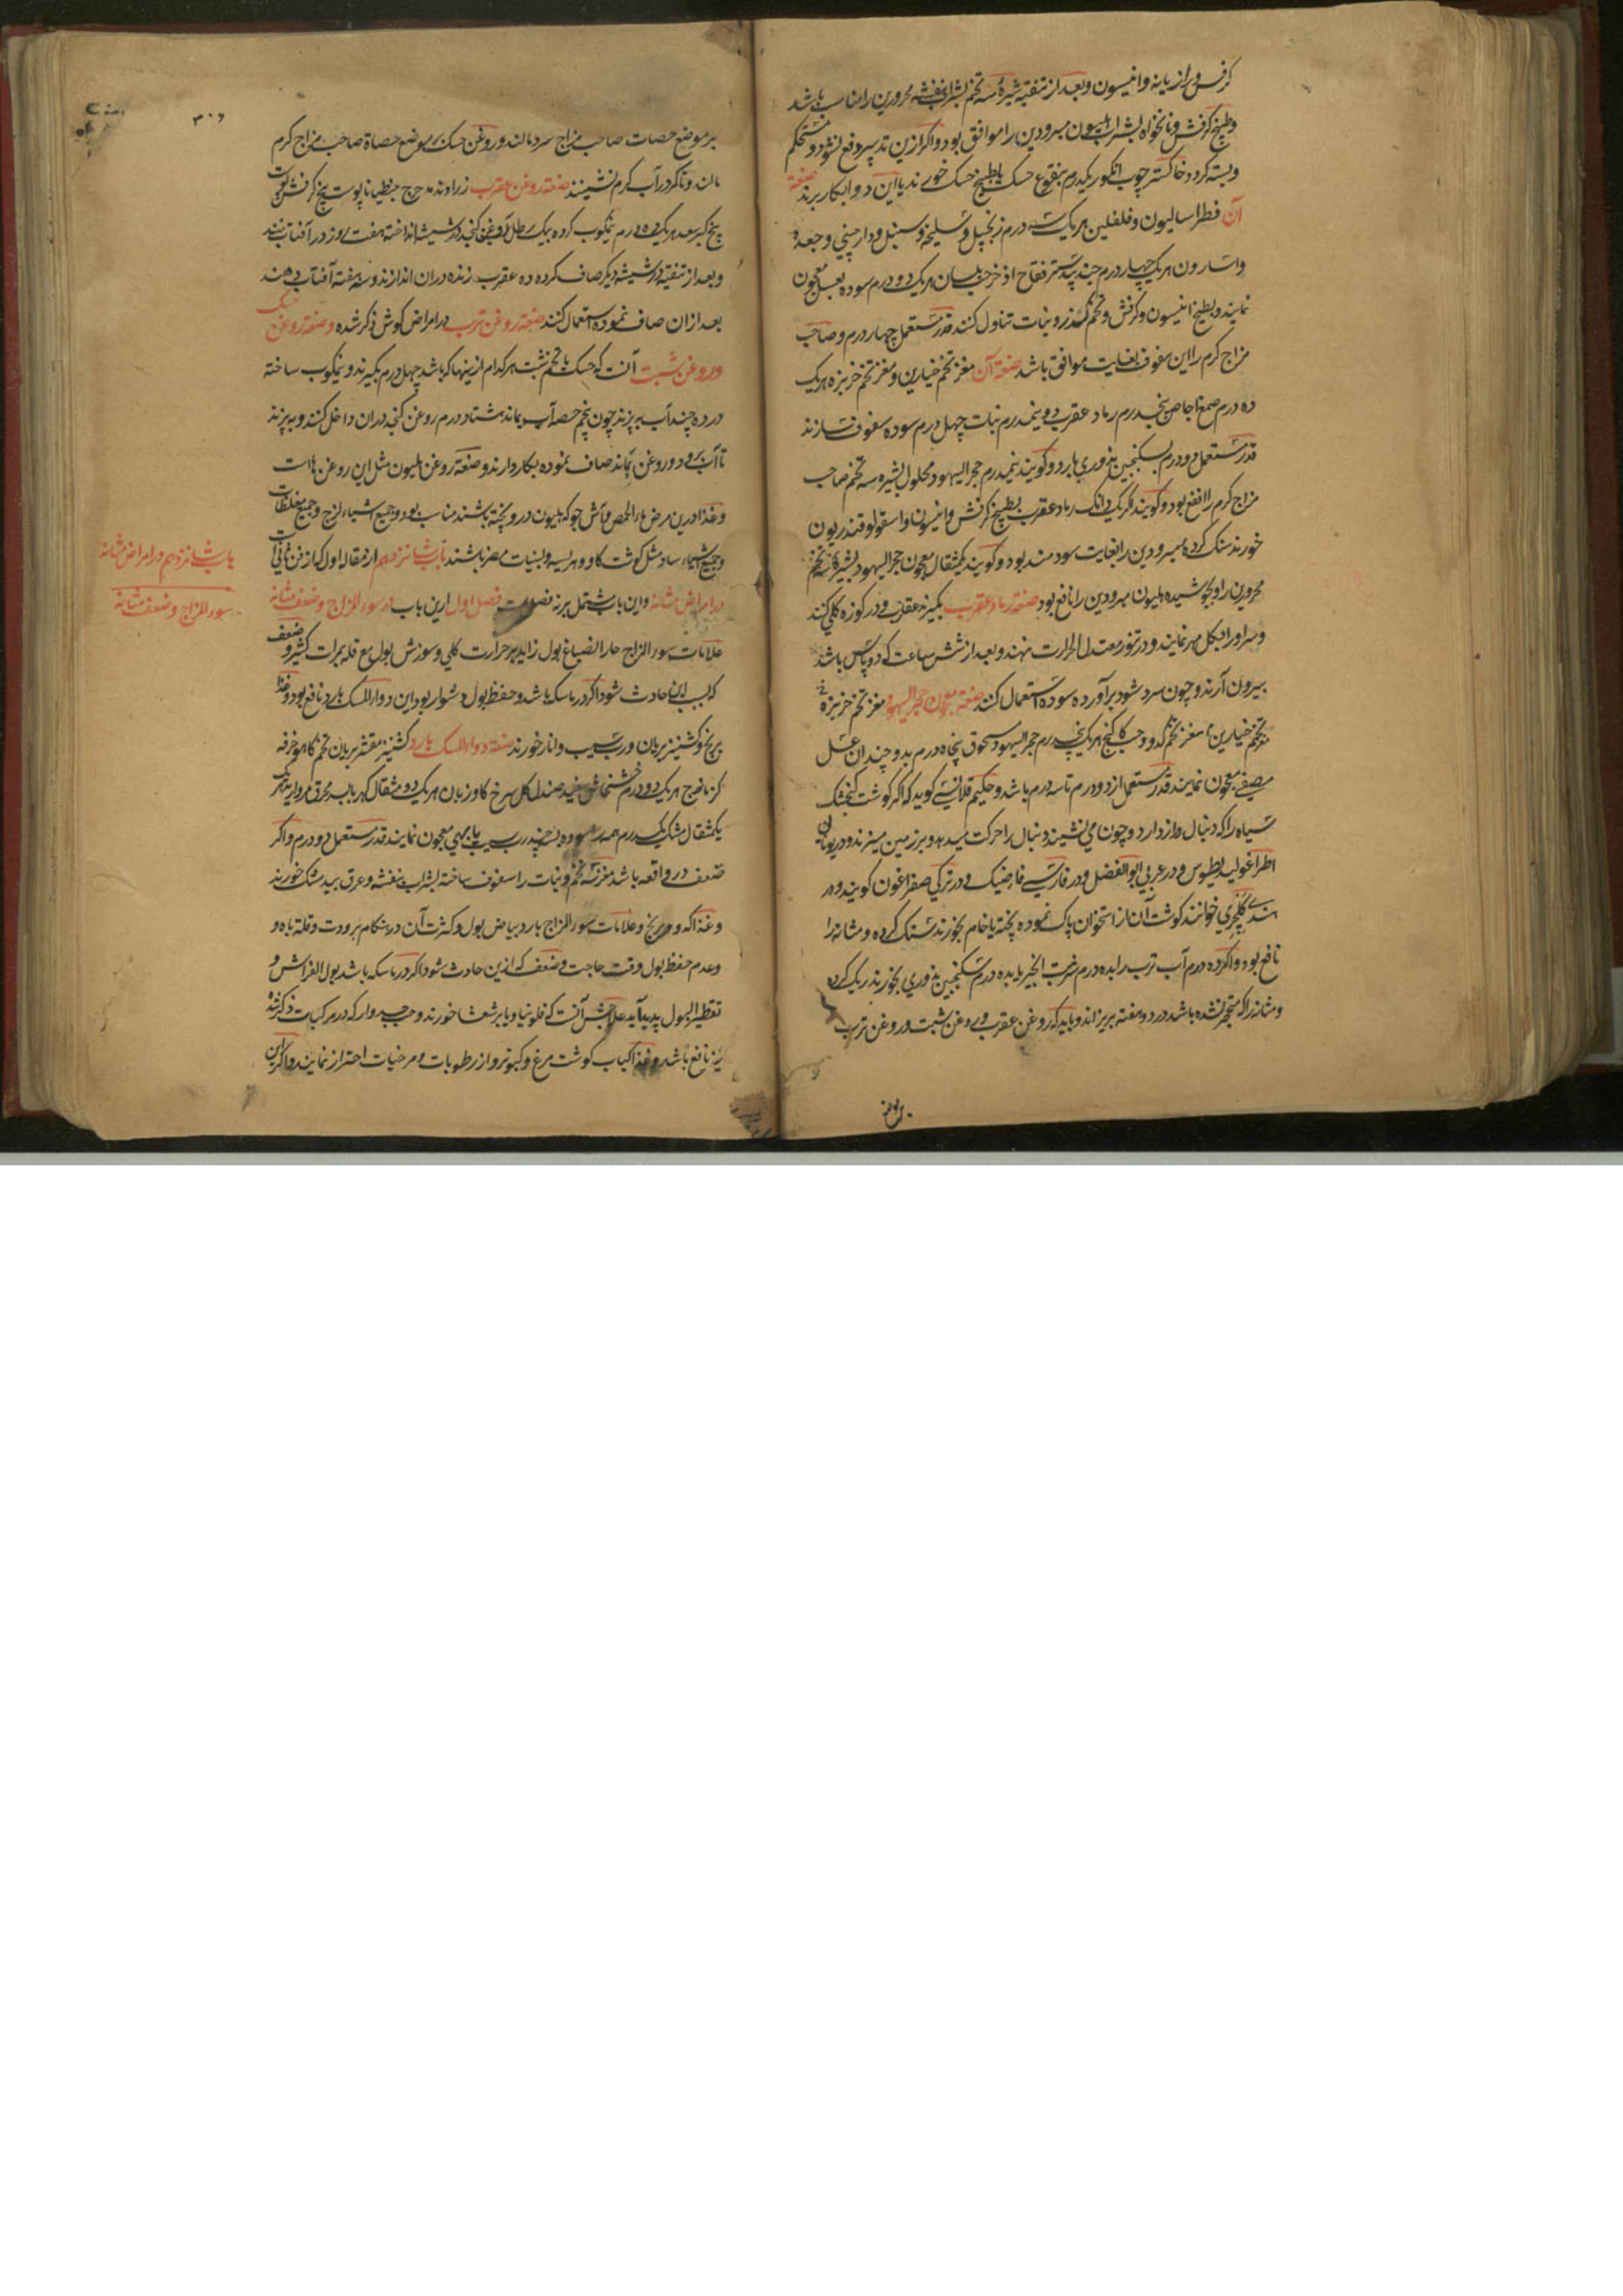 کرفس و رازیانه و انیسون و بعد از تنقیه شیرهٔ سه تخم بشراب بنفشه محرورین را مناسب باشد
و طبیخ کرفس و نانخواه بشراب مبرودین را موافق بود و اگر ازین تدبیر دفع نشود و مستحکم
و بسته گردد خاکستر چوب انگور یکدرم بنقوع خسک یا طبیخ خسک خورند یا این دوا بکار برند صفة
آن فطراسالیون و فلفلین هر یک سه درم زنجبیل و سلیخه و سنبل و دارچینی و جعده
و اسارون هر یک چهار درم جندبیدستر فقاح اذخر حب بلسان هر یک دو درم سوده بعسل معجون
نمایند و بطبیخ انیسون و کرفس و تخم گزر و نبات تناول کنند قدر مستعمل چهار درم و صاحب
مزاج گرم را این سفوف بغایت موافق باشد صفة آن مغز تخم خیارین و مغز تخم خربزه هر یک
ده درم صمغ اجاص پنجدرم رماد عقرب دو نیمدرم نبات چهل درم سوده سفوف سازند
قدر مستعمل دو درم بسکنجبین بزوری بارد و گویند نیمدرم حجر الیهود محلول بشیره سه تخم صاحب
مزاج گرم را انفع بود و گویند اگر یک دانک رماد عقرب بطبیخ کرفس و انیسون و اسقولوقندریون
خورند سنک کرده مبرودین را بغایت سودمند بود و گویند یکمثقال معجون حجر الیهود بشیرهٔ سه تخم
محرورین را و بجوشیده هلیون مبرودین را نافع بود صفة رماد عقرب بگیرند عقرب و در کوزه گلی کنند
و سر او را بگل مهر نمایند و در تنور معتدل الحرارت نهند و بعد از شش ساعت که دو پاس باشد
بیرون آرند و چون سرد شود برآورده سوده استعمال کنند صفة معجون حجر الیهود مغز تخم خربزه
مغز تخم خیارین مغز تخم کدو و حب کاکنج هر یک پنجدرم حجر الیهود مسحوق پنجاه درم بدو چندان عسل
مصفی معجون نمایند قدر مستعمل از دو درم تا سه درم باشد و حکیم قلانسی گوید که اگر گوشت گنجشک
سیاه را که دنبال دراز دارد و چون می نشیند دنبال را حرکت میدهد و بر زمین میزند و در یونان
اطراغولیدیطوس و در عربی ابو الفضل و در فارسی و در ترکی صفراغون گویند و در
هندی خوانند گوشت آن از استخوان پاک نموده پخته یا خام بخورند سنک کرده و مشانه را
نافع بود و اگر ده درم آب ترب را بده درم بسکنجبین بزوری بخورند ریک کرده
و مشانه را که متحجر نشده باشد در دو هفته بریزاند و باید که روغن عقرب و روغن شبت و روغن ترب
بر موضع
۳۰۶
بر موضع حصات صاحب مزاج سرد مالند و روغن خسک بر موضع حصاة صاحب مزاج گرم
مالند و تا کمر در آب گرم نشینند صفة روغن عقرب زراوند مدحرج جنطیانا پوست بیخ کرفس پوست
بیخ کبر سعد هر یک ده درم نیمکوب کرده بیک رطل روغن کنجد در شیشه انداخته هفت روز در آفتاب نهند
و بعد از تنقیه در شیشه دیگر صاف کرده ده عقرب زنده دران اندازند و سه هفته آفتاب دهند
بعد ازان صاف نموده استعمال کنند صفة روغن ترب در امراض گوش ذکر شده و صفة روغن خسک
و روغن شبت آنست که خسک یا تخم شبت هر کدام ازینها که باشد چهل درم بگیرند و نیمکوب ساخته
در ده چند آب بپزند چون پنجم حصه آب بماند هشتاد درم روغن کنجد دران داخل کنند و بپزند
تا آب برود و روغن بماند صاف نموده بکار دارند و صفة روغن هلیون مثل این روغن هاست
و غذا درین مرض ماء الحمص و آش جو که هلیون در و پخته باشند مناسب بود و جمیع اشیاء لزج و جمیع مغلظات
و جمیع اشیاء ساد مثل گوشت گاو و هریسه و لبنیات مضر باشند باب شانزدهم از مقاله اول که از فن ثانیست
در امراض مشانه و این باب مشتمل بر نه فصلست فصل اول ازین باب در سوء المزاج و ضعف مشانه
علامات سوء المزاج حار انصباغ بول زاید بر حرارت کلی و سوزش بول مع قله بمرات کثیر و ضعف
که بسبب این حادث شود اگر در ماسکه باشد و حفظ بول دشوار بود این دواء المسک بارد نافع بود و غذا
برنج و کشنیز بریان و رب سیب و انار خورند صفة دواء المسک بارد کشنیز مقشر بریان تخم کاهو خرفه
کزمازج هر یک دو درم خشخاش سفید صندل گل سرخ گاوزبان هر یک دو مثقال کهربا بسد محرق مروارید هر یک
یکمثقال مشک یکدرم همه را سوده بسه چند رب سیب یا بهی معجون نمایند قدر مستعمل دو درم و اگر
ضعف در دافعه باشد مغز سه تخم و نبات را سفوف ساخته بشراب بنفشه و عرق بید مشک خورند
و غذا کدو و برنج و علامات سوء المزاج بارد بیاض بول و کثرت آن در هنگام برودت و قلة باه و
و عدم حفظ بول وقت حاجت و ضعف که ازین حادث شود اگر در ماسکه باشد بول الفراش و
تقطیر البول پدید آید علاجش آنست که فلونیا و یا برشعثا خورند و حب جدوار که در مرکبات ذکر شد
نیز نافع باشد و غذا کباب گوشت مرغ و کبوتر و از رطوبات و مرخیات احتراز نمایند و اگر این
باب شانزدهم در امراض مشانه
سوء المزاج و ضعف مشانه